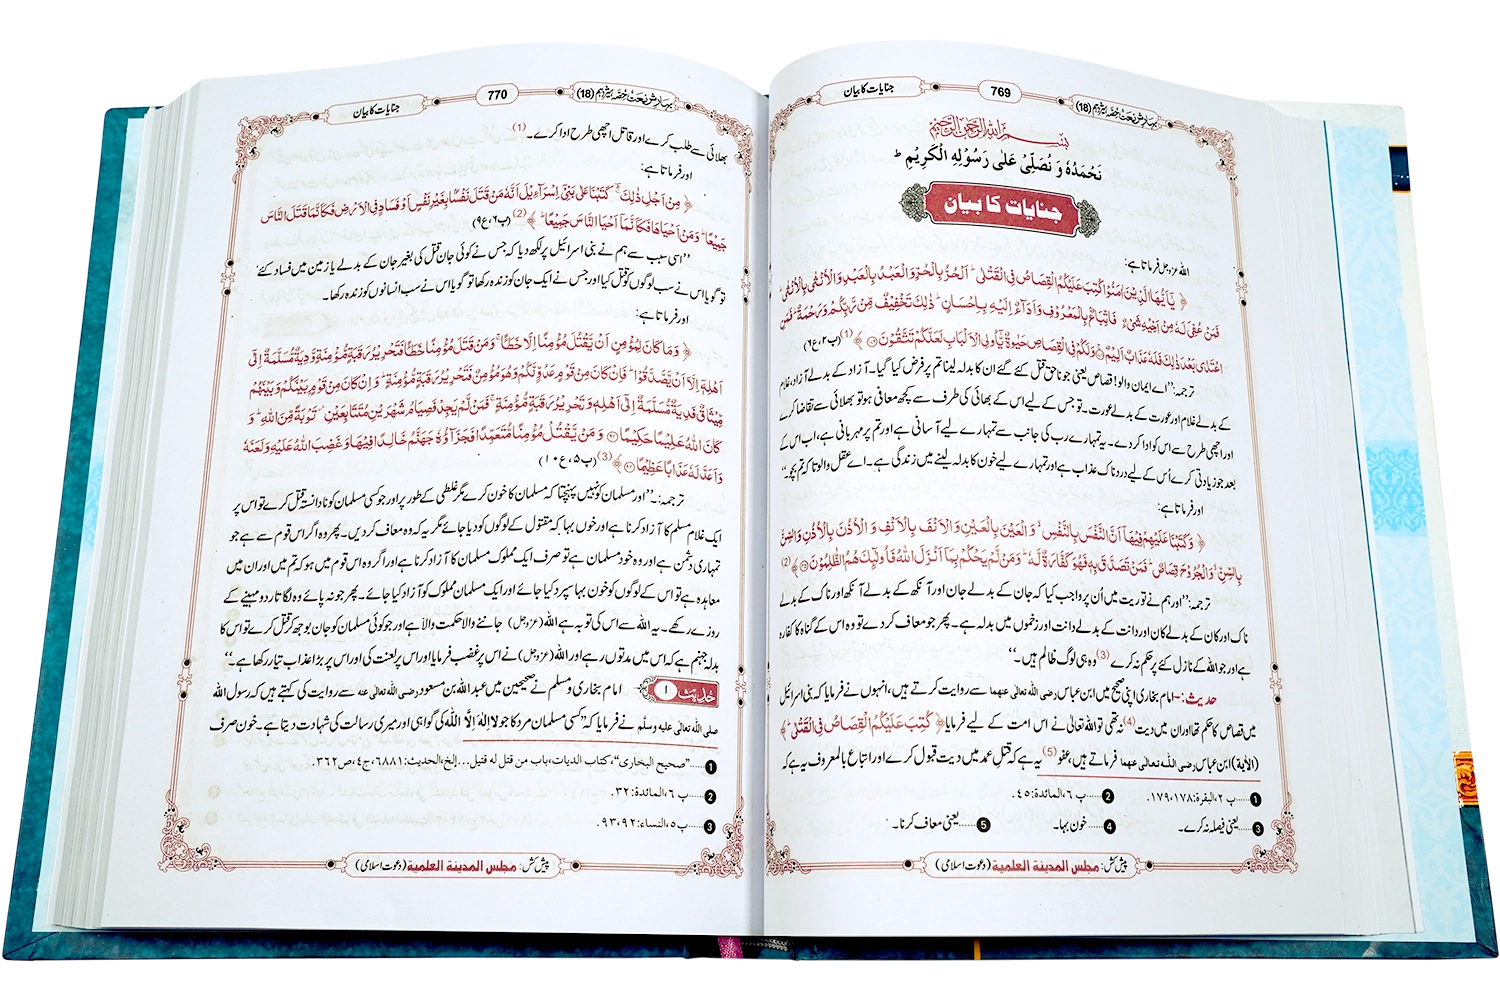 بہارِ شریعت حصّہ ہیژدہم (18)
769
جنایات کا بیان
بِسْمِ اللهِ الرَّحْمٰنِ الرَّحِیْمِ
نَحْمَدُهٗ وَ نُصَلِّیْ عَلٰی رَسُوْلِهِ الْكَرِیْمِ ؕ
جنایات کا بیان
اللہ عزوجل فرماتا ہے:
﴿ یٰۤاَیُّهَا الَّذِیْنَ اٰمَنُوْا كُتِبَ عَلَیْكُمُ الْقِصَاصُ فِی الْقَتْلٰىؕ-اَلْحُرُّ بِالْحُرِّ وَ الْعَبْدُ بِالْعَبْدِ وَ الْاُنْثٰى بِالْاُنْثٰىؕ-
فَمَنْ عُفِیَ لَهٗ مِنْ اَخِیْهِ شَیْءٌ فَاتِّبَاعٌۢ بِالْمَعْرُوْفِ وَ اَدَآءٌ اِلَیْهِ بِاِحْسَانٍؕ-ذٰلِكَ تَخْفِیْفٌ مِّنْ رَّبِّكُمْ وَ رَحْمَةٌؕ-فَمَنِ
اعْتَدٰى بَعْدَ ذٰلِكَ فَلَهٗ عَذَابٌ اَلِیْمٌ وَ لَكُمْ فِی الْقِصَاصِ حَیٰوةٌ یّٰۤاُولِی الْاَلْبَابِ لَعَلَّكُمْ تَتَّقُوْنَ ﴾ (1) (پ۲،ع۶)
ترجمہ: ’’اے ایمان والو! قصاص یعنی جو ناحق قتل کئے گئے ان کا بدلہ لینا تم پر فرض کیا گیا۔ آزاد کے بدلے آزاد، غلام
کے بدلے غلام اور عورت کے بدلے عورت۔ تو جس کے لیے اس کے بھائی کی طرف سے کچھ معافی ہو تو بھلائی سے تقاضا کرے
اور اچھی طرح سے اس کو ادا کردے۔ یہ تمہارے رب کی جانب سے تمہارے لیے آسانی ہے اور تم پر مہربانی ہے، اب اس کے
بعد جو زیادتی کرے اُس کے لیے دردناک عذاب ہے اور تمہارے لیے خون کا بدلہ لینے میں زندگی ہے۔ اے عقل والو تاکہ تم بچو۔‘‘
اور فرماتا ہے:
﴿ وَ كَتَبْنَا عَلَیْهِمْ فِیْهَاۤ اَنَّ النَّفْسَ بِالنَّفْسِۙ-وَ الْعَیْنَ بِالْعَیْنِ وَ الْاَنْفَ بِالْاَنْفِ وَ الْاُذُنَ بِالْاُذُنِ وَ السِّنَّ
بِالسِّنِّۙ-وَ الْجُرُوْحَ قِصَاصٌؕ-فَمَنْ تَصَدَّقَ بِهٖ فَهُوَ كَفَّارَةٌ لَّهٗؕ-وَ مَنْ لَّمْ یَحْكُمْ بِمَاۤ اَنْزَلَ اللّٰهُ فَاُولٰٓىٕكَ هُمُ الظّٰلِمُوْنَ ﴾ (2)
ترجمہ: ’’اور ہم نے توریت میں اُن پر واجب کیا کہ جان کے بدلے جان اور آنکھ کے بدلے آنکھ اور ناک کے بدلے
ناک اور کان کے بدلے کان اور دانت کے بدلے دانت اور زخموں میں بدلہ ہے۔ پھر جو معاف کردے تو وہ اس کے گناہ کا کفارہ
ہے اور جو اللہ کے نازل کئے پر حکم نہ کرے (3) وہ ہی لوگ ظالم ہیں۔‘‘
حدیث:- امام بخاری اپنی صحیح میں ابن عباس رضی اللہ تعالٰی عنهما سے روایت کرتے ہیں، انہوں نے فرمایا کہ بنی اسرائیل
میں قصاص کا حکم تھا اور ان میں دیت (4) نہ تھی تو اللہ تعالیٰ نے اس امت کے لیے فرمایا ﴿ كُتِبَ عَلَیْكُمُ الْقِصَاصُ فِی الْقَتْلٰىؕ ﴾
(الآیة) ابن عباس رضی اللہ تعالٰی عنهما فرماتے ہیں، عفو (5) یہ ہے کہ قتلِ عمد میں دیت قبول کرے اور اتباع بالمعروف یہ ہے کہ
1......پ ۲،البقرة:۱۷۹،۱۷۸.
2......پ ٦،المائدة:٤٥.
3......یعنی فیصلہ نہ کرے۔
4......خون بہا۔
5......یعنی معاف کرنا۔
پیش کش: مجلس المدینة العلمیة (دعوت اسلامی)
بہارِ شریعت حصّہ ہیژدہم (18)
770
جنایات کا بیان
بھلائی سے طلب کرے اور قاتل اچھی طرح ادا کرے۔ (1)
اور فرماتا ہے:
﴿ مِنْ اَجْلِ ذٰلِكَ ۚ كَتَبْنَا عَلٰى بَنِیْۤ اِسْرَآءِیْلَ اَنَّهٗ مَنْ قَتَلَ نَفْسًۢا بِغَیْرِ نَفْسٍ اَوْ فَسَادٍ فِی الْاَرْضِ فَكَاَنَّمَا قَتَلَ النَّاسَ
جَمِیْعًاؕ-وَ مَنْ اَحْیَاهَا فَكَاَنَّمَاۤ اَحْیَا النَّاسَ جَمِیْعًاؕ ﴾ (2) (پ۶،ع۹)
’’اسی سبب سے ہم نے بنی اسرائیل پر لکھ دیا کہ جس نے کوئی جان قتل کی بغیر جان کے بدلے یا زمین میں فساد کئے
تو گویا اس نے سب لوگوں کو قتل کیا اور جس نے ایک جان کو زندہ رکھا تو گویا اس نے سب انسانوں کو زندہ رکھا۔
اور فرماتا ہے:
﴿ وَ مَا كَانَ لِمُؤْمِنٍ اَنْ یَّقْتُلَ مُؤْمِنًا اِلَّا خَطَــٴًـاۚ-وَ مَنْ قَتَلَ مُؤْمِنًا خَطَــٴًـا فَتَحْرِیْرُ رَقَبَةٍ مُّؤْمِنَةٍ وَّ دِیَةٌ مُّسَلَّمَةٌ اِلٰۤى
اَهْلِهٖۤ اِلَّاۤ اَنْ یَّصَّدَّقُوْاؕ-فَاِنْ كَانَ مِنْ قَوْمٍ عَدُوٍّ لَّكُمْ وَ هُوَ مُؤْمِنٌ فَتَحْرِیْرُ رَقَبَةٍ مُّؤْمِنَةٍؕ-وَ اِنْ كَانَ مِنْ قَوْمٍۭ بَیْنَكُمْ وَ بَیْنَهُمْ
مِّیْثَاقٌ فَدِیَةٌ مُّسَلَّمَةٌ اِلٰۤى اَهْلِهٖ وَ تَحْرِیْرُ رَقَبَةٍ مُّؤْمِنَةٍۚ-فَمَنْ لَّمْ یَجِدْ فَصِیَامُ شَهْرَیْنِ مُتَتَابِعَیْنِ٘-تَوْبَةً مِّنَ اللّٰهِؕ-وَ
كَانَ اللّٰهُ عَلِیْمًا حَكِیْمًا وَ مَنْ یَّقْتُلْ مُؤْمِنًا مُّتَعَمِّدًا فَجَزَآؤُهٗ جَهَنَّمُ خٰلِدًا فِیْهَا وَ غَضِبَ اللّٰهُ عَلَیْهِ وَ لَعَنَهٗ
وَ اَعَدَّ لَهٗ عَذَابًا عَظِیْمًا ﴾ (3) (پ۵،ع۱۰)
ترجمہ:۔ ’’اور مسلمان کو نہیں پہنچتا کہ مسلمان کا خون کرے مگر غلطی کے طور پر اور جو کسی مسلمان کو نادانستہ قتل کرے تو اس پر
ایک غلام مسلم کا آزاد کرنا ہے اور خوں بہا کہ مقتول کے لوگوں کو دیا جائے مگر یہ کہ وہ معاف کردیں۔ پھر وہ اگر اس قوم سے ہے جو
تمہاری دشمن ہے اور وہ خود مسلمان ہے تو صرف ایک مملوک مسلمان کا آزاد کرنا ہے اور اگر وہ اس قوم میں ہو کہ تم میں اور ان میں
معاہدہ ہے تو اس کے لوگوں کو خون بہا سپرد کیا جائے اور ایک مسلمان مملوک کو آزاد کیا جائے۔ پھر جو نہ پائے وہ لگاتار دو مہینے کے
روزے رکھے۔ یہ اللہ سے اس کی توبہ ہے اللہ (عزوجل) جاننے والا حکمت والا ہے اور جو کوئی مسلمان کو جان بوجھ کر قتل کرے تو اس کا
بدلہ جہنم ہے کہ اس میں مدتوں رہے اور اللہ (عزوجل) نے اس پر غضب فرمایا اور اس پر لعنت کی اور اس پر بڑا عذاب تیار رکھا ہے۔‘‘
حدیث ۱ امام بخاری و مسلم نے صحیحین میں عبداللہ بن مسعود رضی اللہ تعالٰی عنه سے روایت کی کہتے ہیں کہ رسول اللہ
صلی اللہ تعالٰی علیه وسلم نے فرمایا کہ ’’کسی مسلمان مرد کا جو لا اِلٰهَ اِلَّا اللّٰه کی گواہی اور میری رسالت کی شہادت دیتا ہے۔ خون صرف
1......’’صحیح البخاری‘‘، کتاب الدیات،باب من قتل له قتیل...إلخ،الحدیث:٦٨٨١،ج٤،ص٣٦٢.
2......پ ٦،المائدة:٣٢.
3......پ٥،النساء:٩٣،٩٢.
پیش کش: مجلس المدینة العلمیة (دعوت اسلامی)